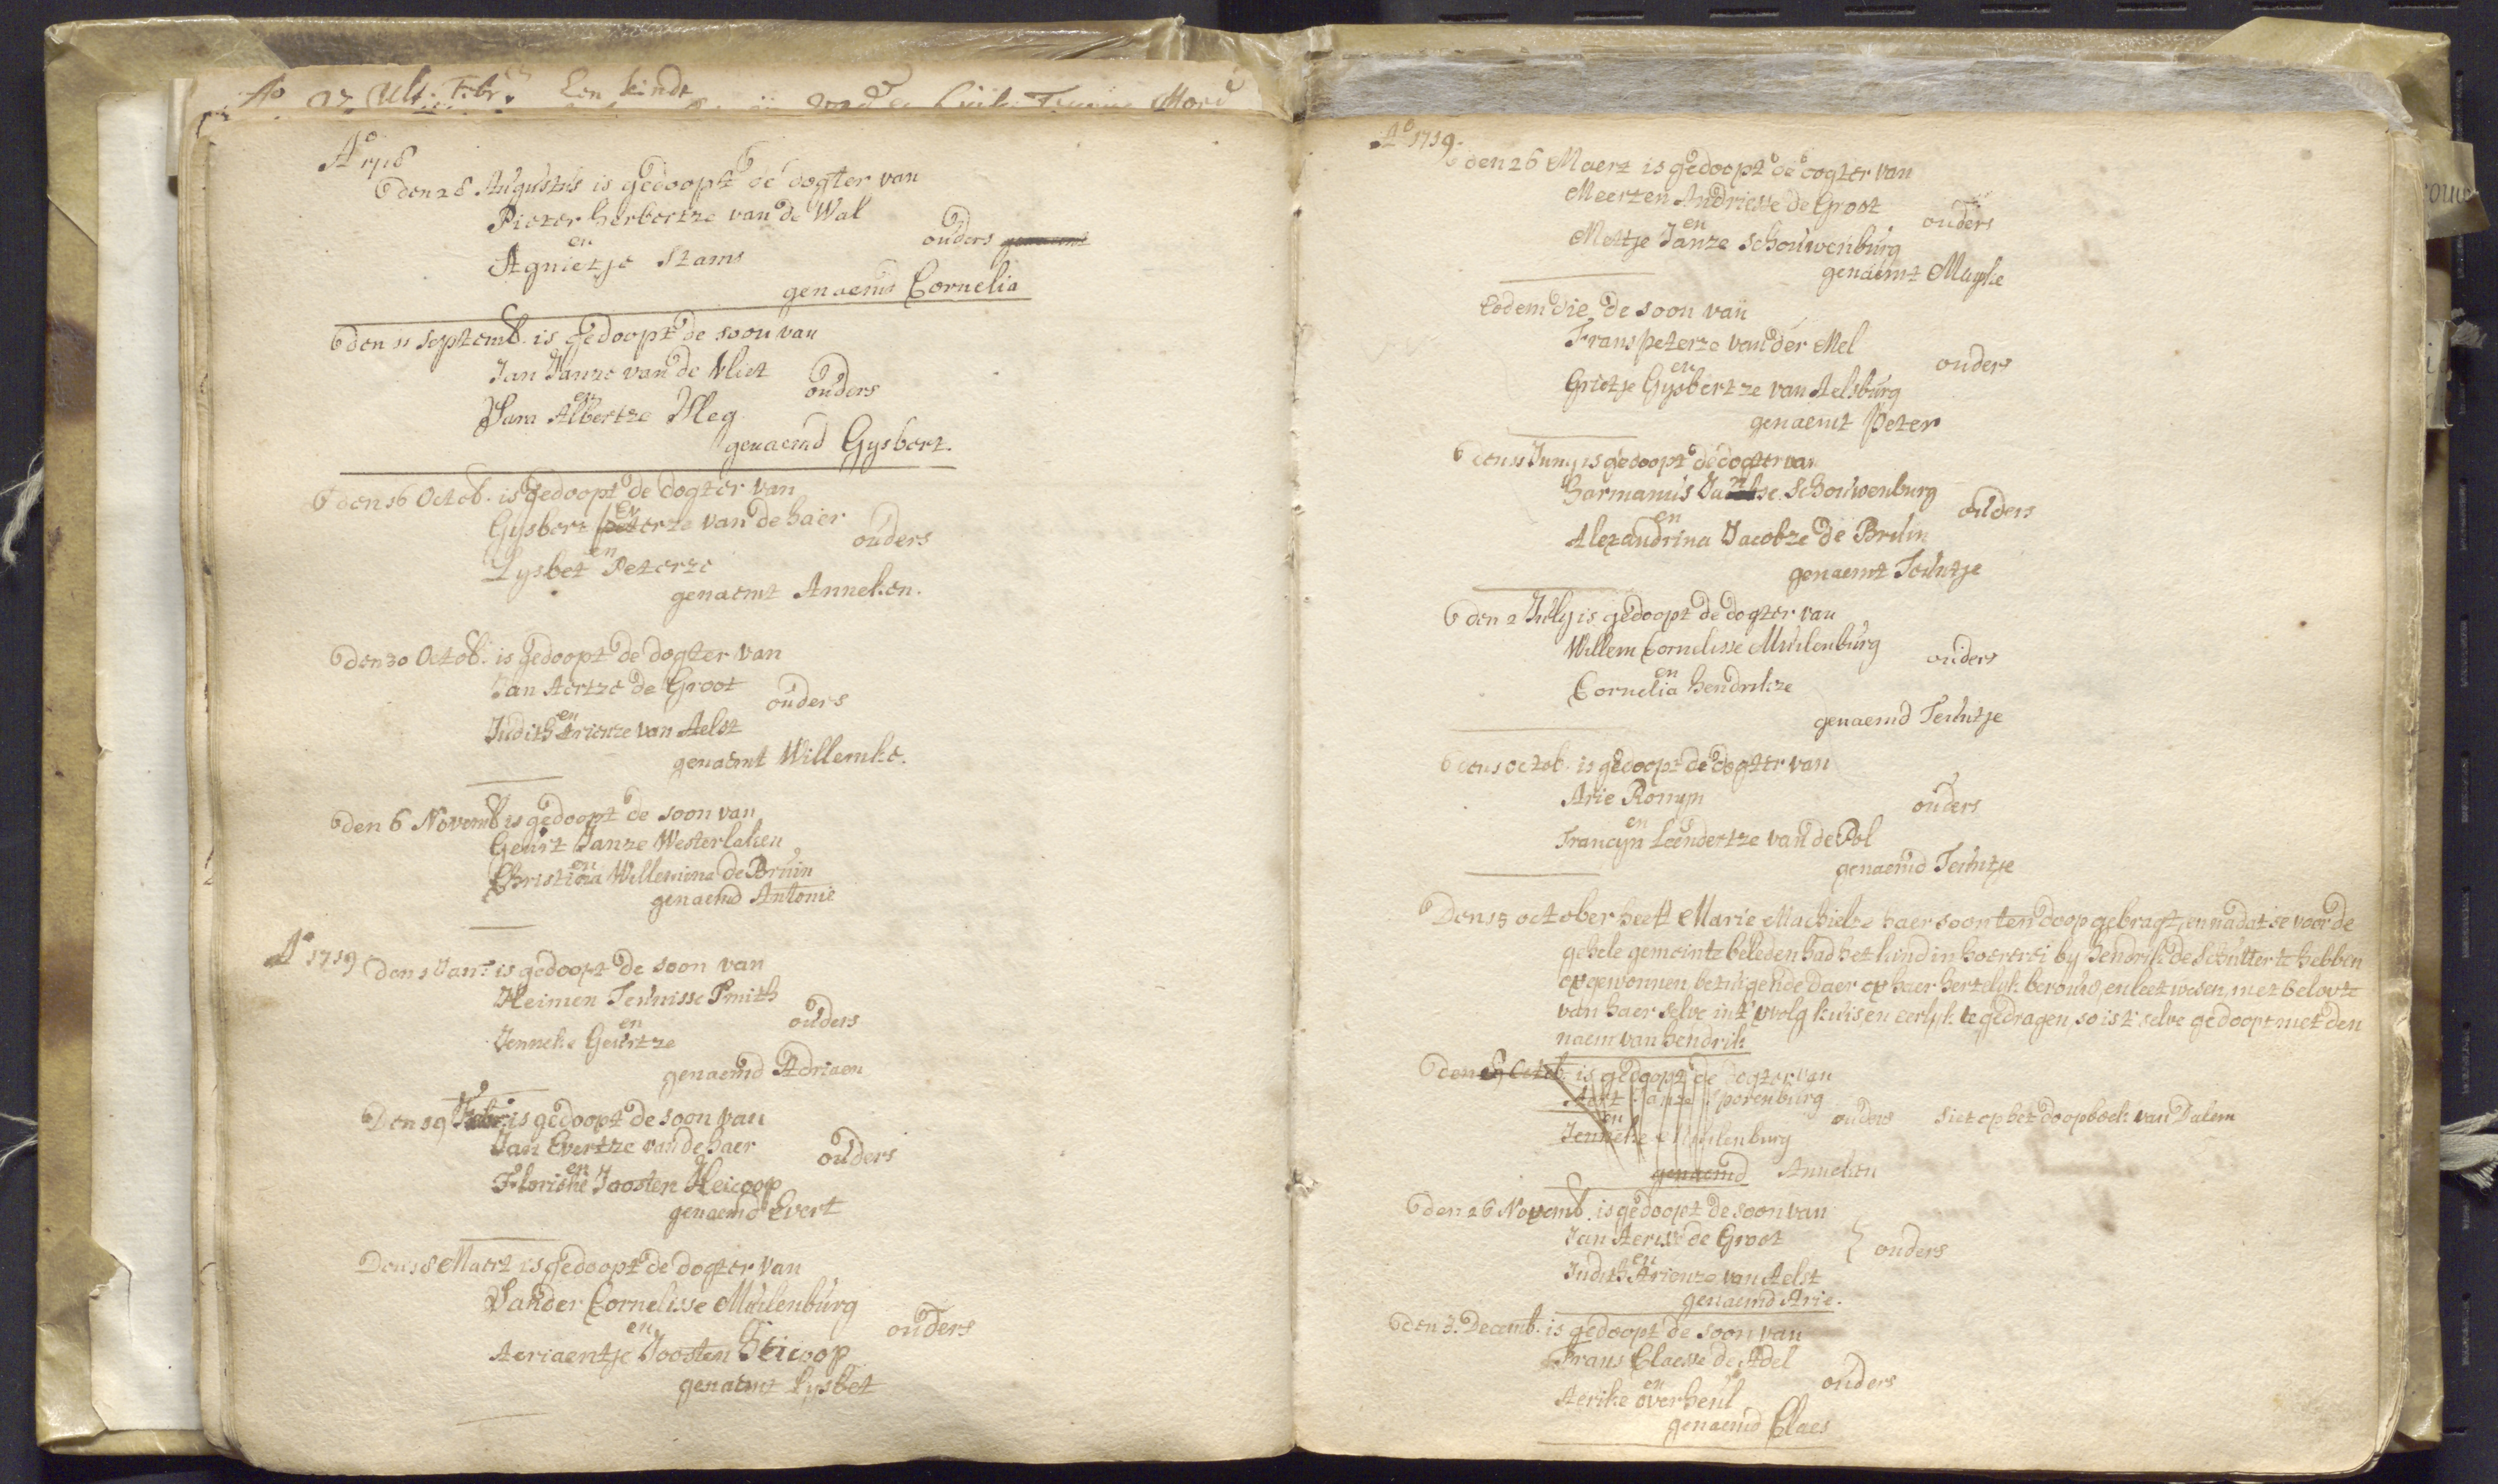 Ao 97 Ult. Febr. Een kindt
Ao 1718
den 28 Augustus is gedoopt de dogter van
Pieter herbertze van de Wal
en
ouders
Agnietje Stams
genaemd Cornelia
den 11 Septemb. is gedoopt de soon van
Jan Janze van de Vliet
en
ouders
Sara Albertze Vleg
genaemd Gysbert.
den 16 Octob. is gedoopt de dogter van
Gysbert Everze van de haer
en
ouders
Lysbet Peterze
genaemt Anneken.
den 30 Octob. is gedoopt de dogter van
Jan Aertze de Groot
en
ouders
Judith Arienze van Aelst
genaemt Willemke.
den 6 Novemb is gedoopt de soon van
Geurt Janze Westerlaken
en
Christina Willemina de Bruin
genaemd Antonie
Ao 1719
den 1 Jan: is gedoopt de soon van
Heimen Teunisse Smith
en
ouders
Jenneke Geurtze
genaemd Adriaen
Den 19 Febr: is gedoopt de soon van
Jan Evertze van de haer
en
ouders
Florieke Joosten Heicoop
genaemd Evert
Den 18 Maert is gedoopt de dogter van
Sander Cornelisse Muilenburg
en
ouders
Aeriaentje Joosten Heicoop
genaemt Lysbet
Ao 1719.
den 26 Maert is gedoopt de dogter van
Meerten Andriesse de Groot
en
ouders
Metje Janze Schouwenburg
genaemt Mayke
Eodem die de soon van
Frans peterze van der Mel
en
ouders
Grietje Gysbertze van Aelsburg
genaemt Peter
den 11 Juny is gedoopt de dogter van
Harmanus Janse Schouwenburg
en
ouders
Alexandrina Jacobze de Bruin
genaemt Teuntje
den 2 July is gedoopt de dogter van
Willem Cornelisse Muilenburg
en
ouders
Cornelia hendrikze
genaemd Teuntje
den 1 octob. is gedoopt de dogter van
Arie Romyn
en
ouders
Francyn Leendertze van de Pol
genaemd Teuntje
Den 15 october heeft Marie Machielze haer soon ten doop gebragt, en nadat se voor de
gehele gemeinte beleden had het kind in hoererei by Hendrik de Schutter te hebben
opgewonnen, betuigende daer op haer hertelyk berouw, en leetwesen, met belovte
van haer selve in't vvolg kuis en eerlyk te gedragen, so is t selve gedoopt met den
naem van hendrik
den 29 Octob. is gedoopt de dogter van
Aert Janze Sporenburg
en
ouders Siet op het doopboek van Dalem
Jenneke Muilenburg
genaemd Anneken
den 26 Novemb. is gedoopt de soon van
Jan Aertse de Groot
en
ouders
Judith Arienze van Aelst
genaemd Arie.
den 3. Decemb. is gedoopt de soon van
Frans Claesse de Adel
en
ouders
Aerike overheul
genaemd Claes